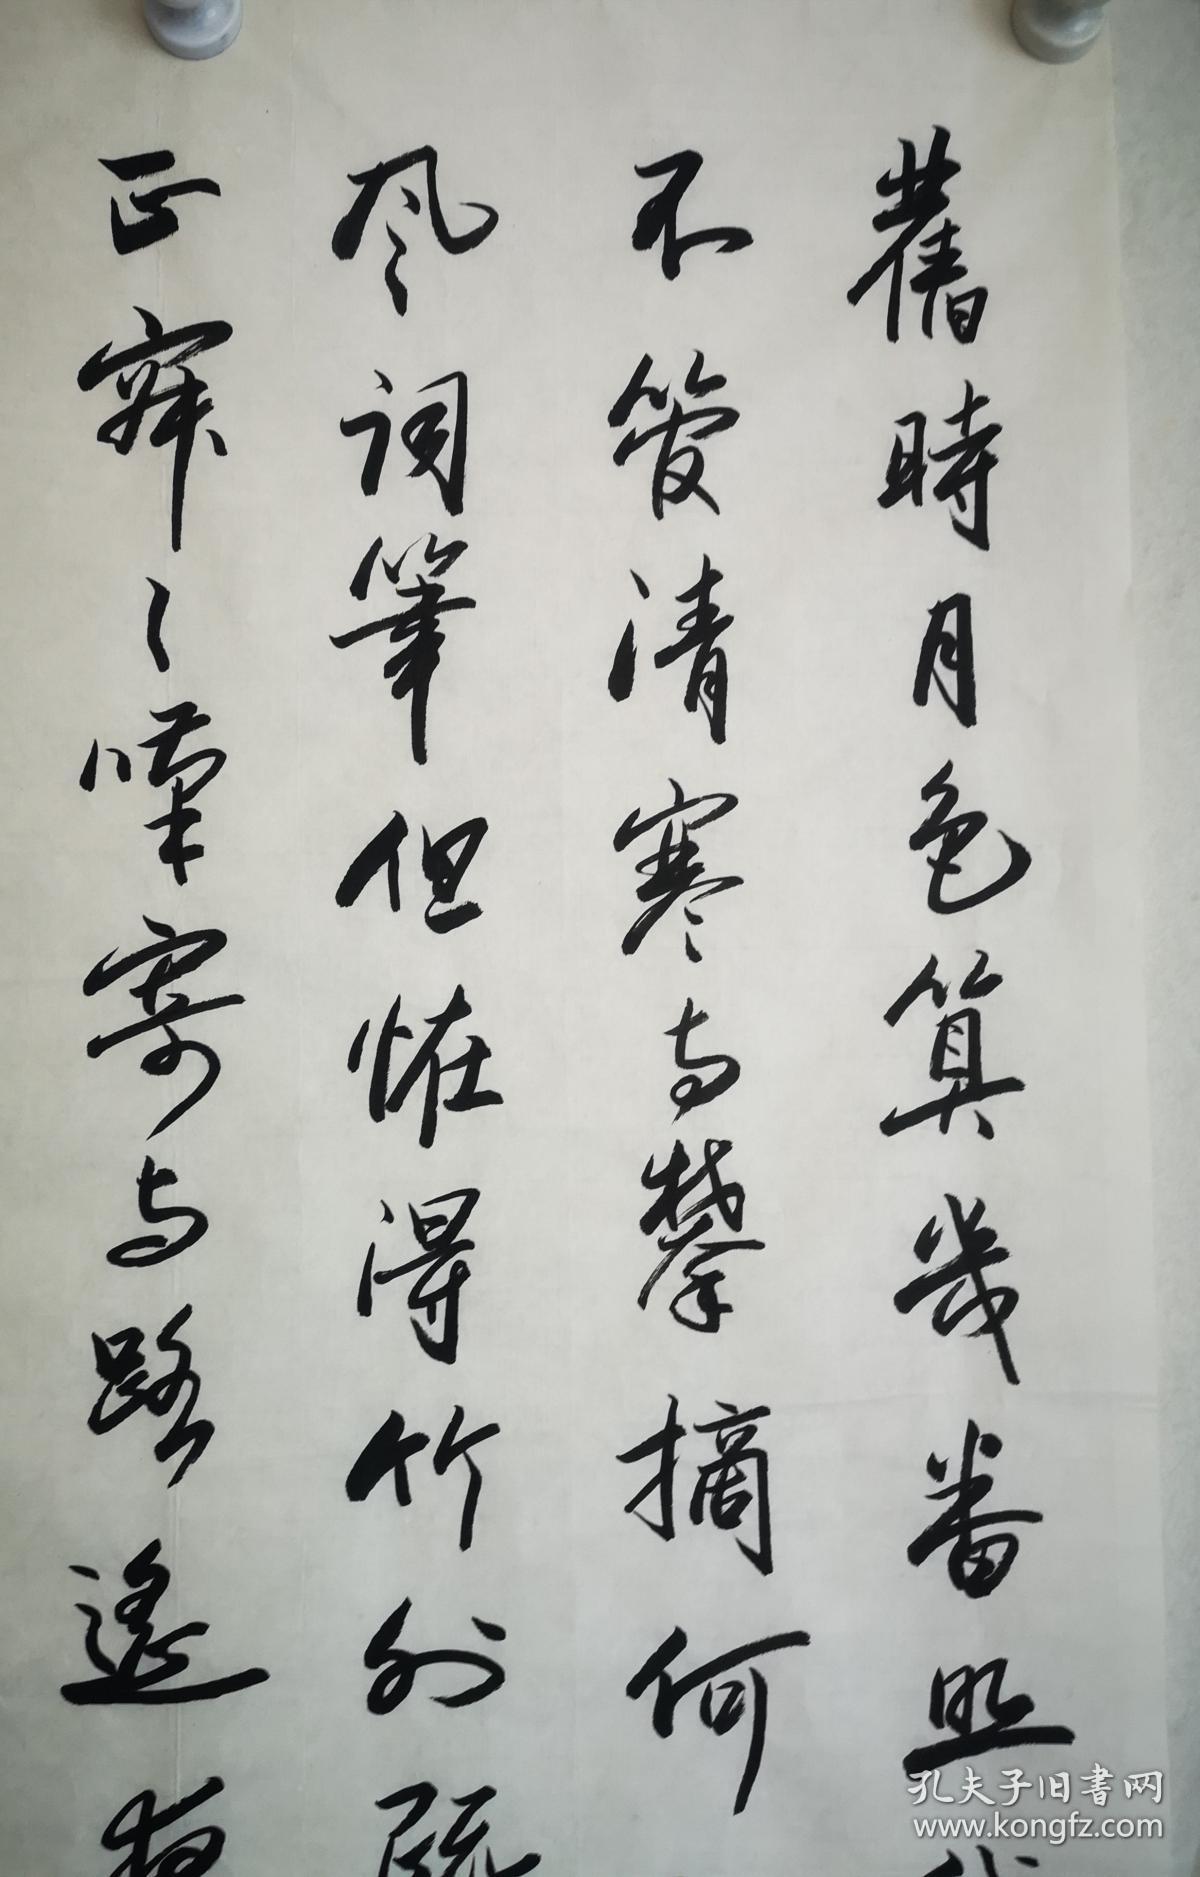 舊時月色算幾番照
不管清寒与攀摘何
風詞筆但恠得竹外疏
正寂〻嘆寄与路遙夜
孔夫子旧書网
www.kongfz.com